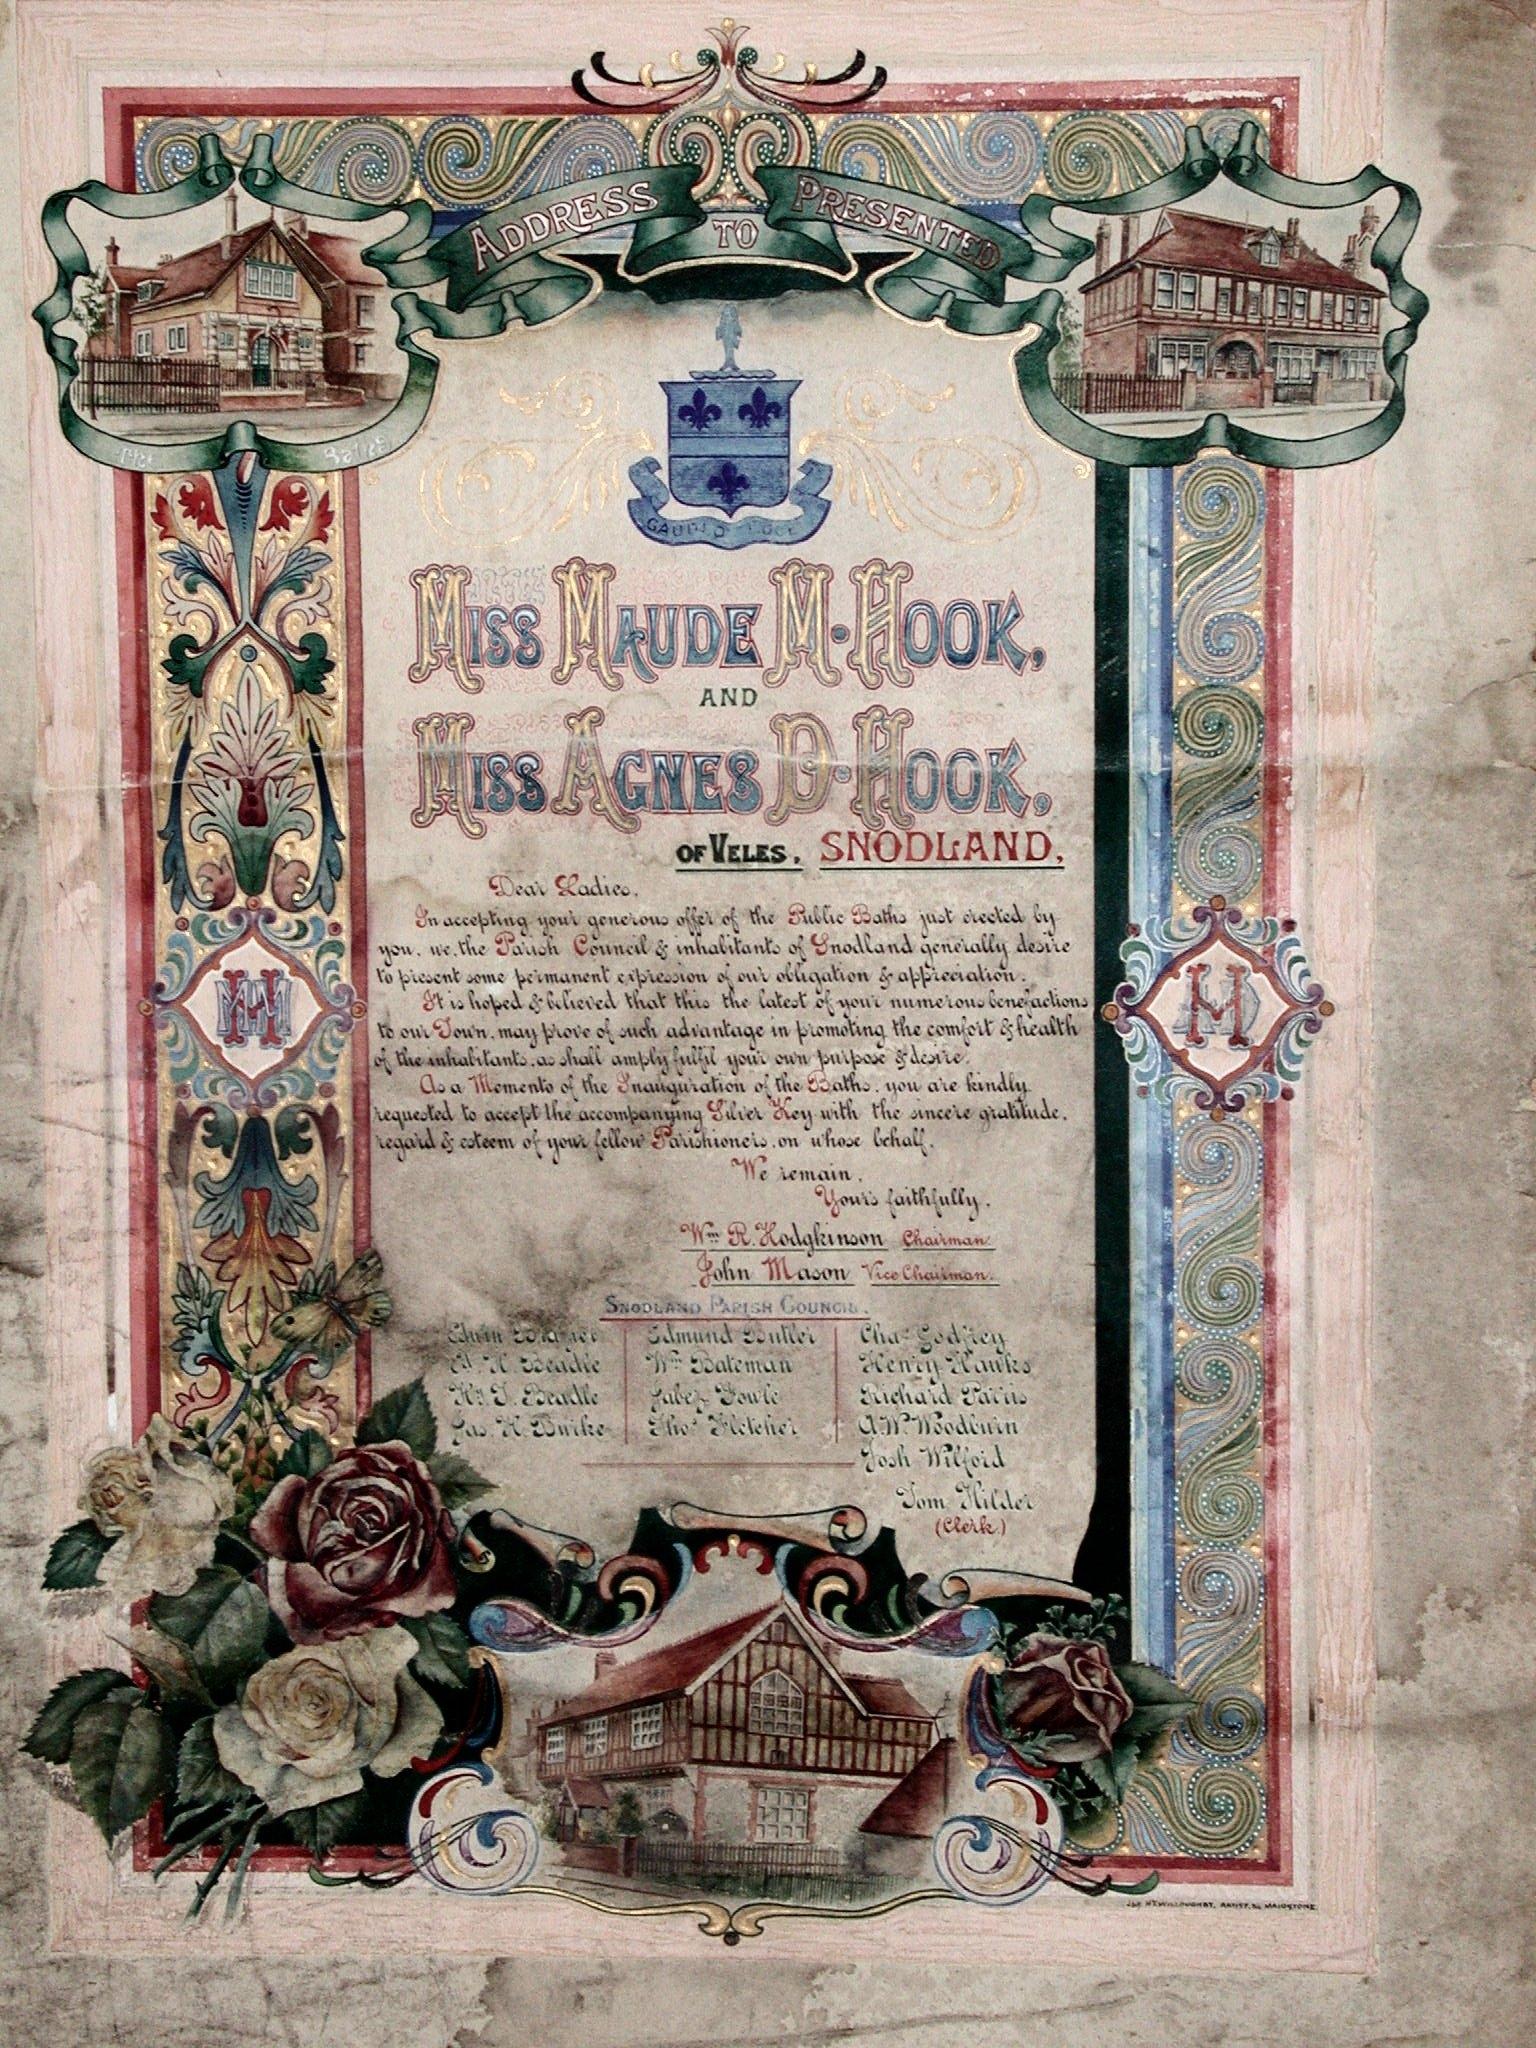 ADDRESS PRESENTED
TO
The Baths
MISS MAUDE M. HOOK,
AND
MISS AGNES D. HOOK,
OF VELES, SNODLAND,
Dear Ladies,
In accepting your generous offer of the Public Baths just erected by
you, we, the Parish Council & inhabitants of Snodland generally desire
to present some permanent expression of our obligation & appreciation.
It is hoped & believed that this the latest of your numerous benefactions
to our Town, may prove of such advantage in promoting the comfort & health
of the inhabitants, as shall amply fulfil your own purpose & desire.
As a Memento of the Inauguration of the Baths, you are kindly
requested to accept the accompanying Silver Key with the sincere gratitude,
regard & esteem of your fellow Parishioners, on whose behalf,
We remain,
Yours faithfully,
Wm R. Hodgkinson Chairman.
John Mason Vice Chairman.
SNODLAND PARISH COUNCIL.
Edwin Edmund Butler Chas Godfrey
H. Beadle Wm Bateman Henry Hawks
Beadle Jabez Fowle Richard Parris
Jas. H. Burke Thos Fletcher A.W. Woodburn
Josh Wilford
Tom Hilder
(Clerk.)
WILLOUGHBY, ARTIST, MAIDSTONE.